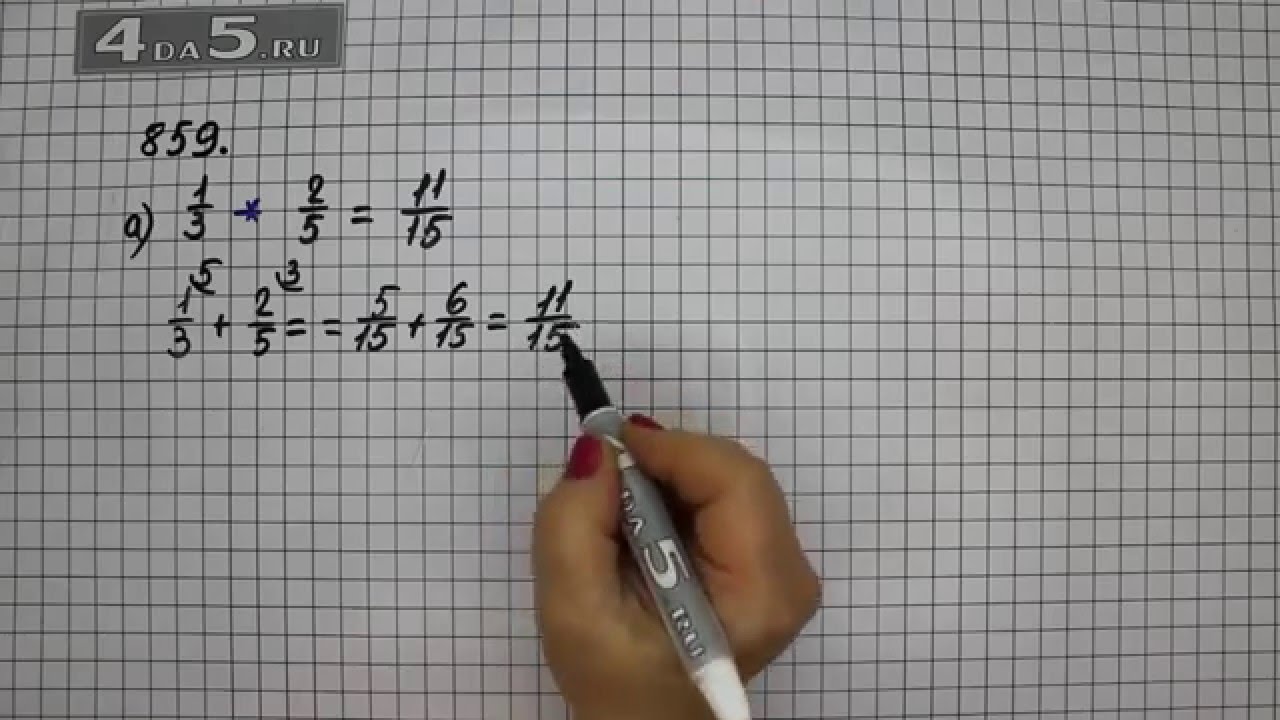 4DA5.RU
859.
а) 1/3 * 2/5 = 11/15
1/3 ⁵ + 2/5 ³ = = 5/15 + 6/15 = 11/15
DA 5 .RU